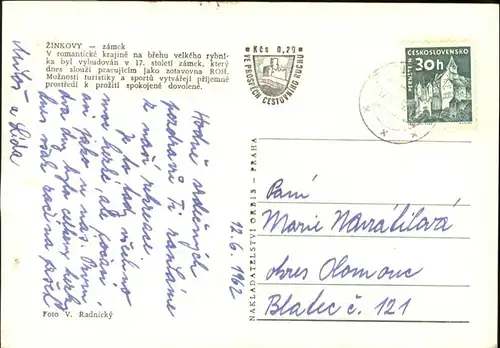 ŽINKOVY — zámek
V romantické krajině na břehu velkého rybní-
ka byl vybudován v 17. století zámek, který
dnes slouží pracujícím jako zotavovna ROH.
Možnosti turistiky a sportů vytvářejí příjemné
prostředí k prožití spokojené dovolené.
Kčs 0,20
VE PROSPĚCH CESTOVNÍHO RUCHU
ČESKOSLOVENSKO
30h
PERNŠTEJN
Hodně srdečných
pozdravů Ti zasíláme
z naší rekreace.
Je to tady všechno
moc hezké, ale počasí
jako u nás. První
dva dny bylo celkem hezky
Miloš a Lida
12. 6. 1962
NAKLADATELSTVÍ ORBIS — PRAHA
Paní
Marie Navrátilová
okres Olomouc
Blatec č. 121
Foto V. Radnický